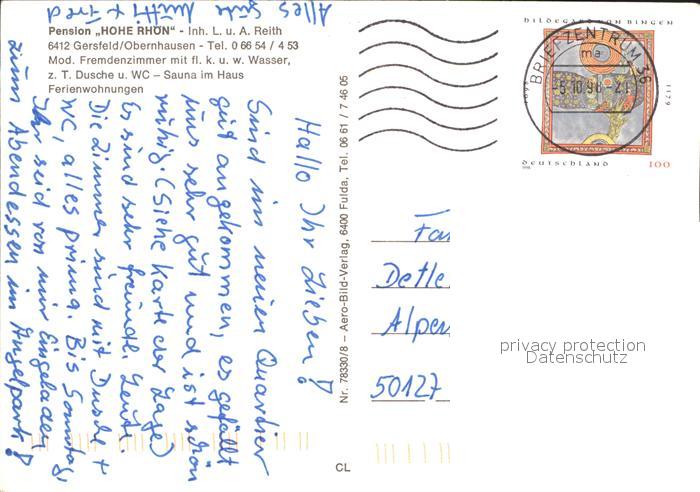 Pension „HOHE RHÖN" - Inh. L. u. A. Reith
6412 Gersfeld/Obernhausen - Tel. 0 66 54 / 4 53
Mod. Fremdenzimmer mit fl. k. u. w. Wasser,
z. T. Dusche u. WC – Sauna im Haus
Ferienwohnungen
Hallo Ihr Lieben!
Sind im neuen Quartier
gut angekommen, es gefällt
uns sehr gut und ist schön
ruhig. (Siehe Karte der Lage)
Es sind sehr freundl. Leute.
Die Zimmer sind mit Dusche +
WC, alles prima. Bis Sonntag,
Ihr seid von mir Eingeladen
zum Abendessen im Angelpark!
Alles Gute
Mutti + Fred
Nr. 78330/8 – Aero-Bild-Verlag, 6400 Fulda, Tel. 06 61 / 7 46 05
CL
HILDEGARD VON BINGEN
1098
1179
DEUTSCHLAND 100
1998
BRIEFZENTRUM 36
ma
-5.10.98-21
Fam
Detle
Alpen
50127
privacy protection
Datenschutz